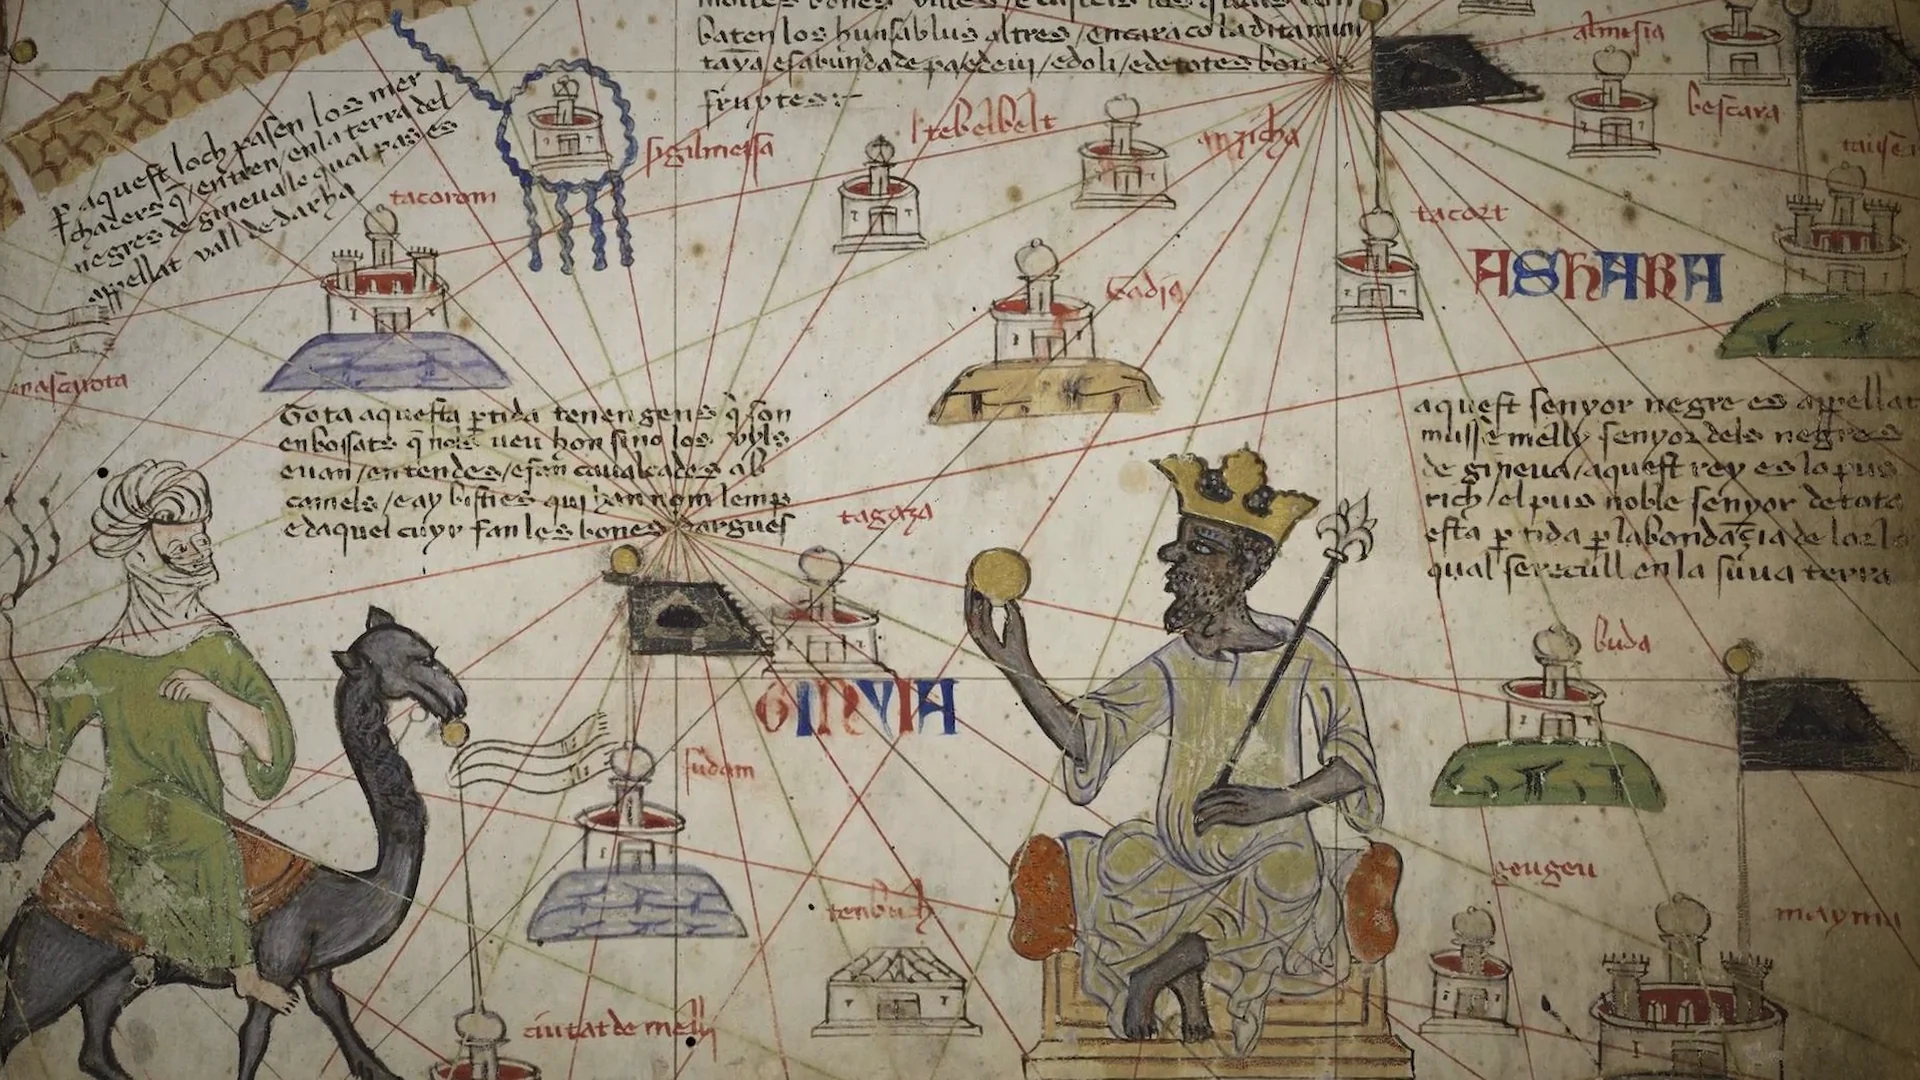 baten los hunsablus altres / encara co la dita mun
taya es abundada de pa / e de vi / e d oli / e de totes bones
fruytes :-
p aquest loch pasen los mer
chaders q̄ / entren / en la terra del
negres de gineua le qual pas es
appellat vall de darha
sigilmessa
tacorom
tebelbelt
anzicha
tacort
almesia
bescara
ASHARA
mascarota
tagaza
Tota aquesta ptida tenen gens q̄ son
enbossats q̄ nols veu hon sino los vyls
e van / en tendes / e fan caualcades ab
camels / e ay bisties qui han nom lemp
e daquel cuyr fan les bones dargues
aquest senyor negre es appellat
musse melly senyor dels negres
de gineua / aquest rey es lo pus
rich / el pus noble senyor de tota
esta ptida p labondaçia de lor lo
qual se recull en la suua terra
buda
GINYIA
sudam
tenbuch
geugeu
mayma
ciutat de melly